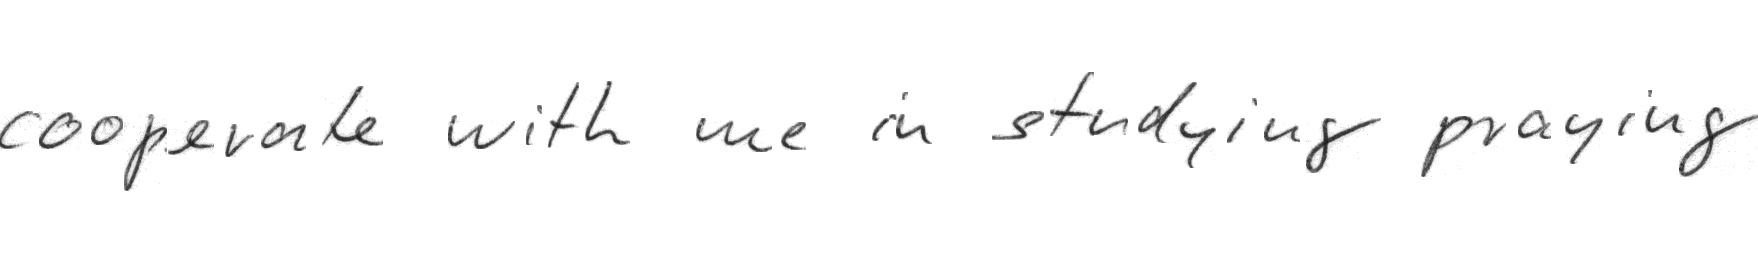 cooperate with me in studying praying